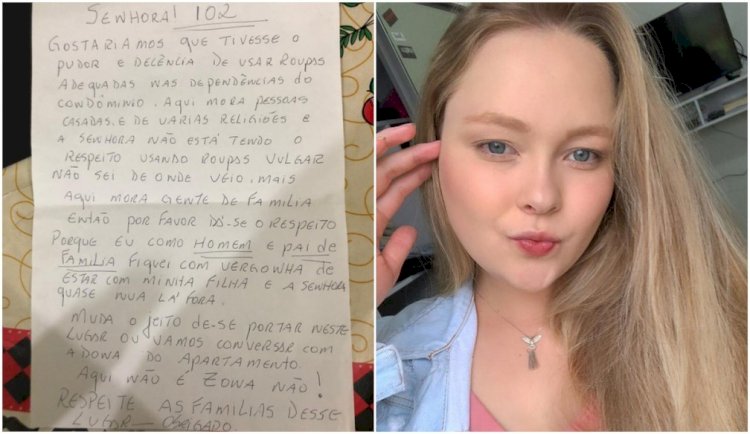 SENHORA! 102
GOSTARIAMOS QUE TIVESSE O
PUDOR E DECÊNCIA DE USAR ROUPAS
ADEQUADAS NAS DEPENDÊNCIAS DO
CONDÔMINIO. AQUI MORA PESSOAS
CASADAS. E DE VARIAS RELIGIÕES E
A SENHORA NÃO ESTÁ TENDO O
RESPEITO USANDO ROUPAS VULGAR
NÃO SEI DE ONDE VEIO. MAIS
AQUI MORA GENTE DE FAMILIA
ENTÃO POR FAVOR DÊ-SE O RESPEITO
PORQUE EU COMO HOMEM E PAI DE
FAMILIA FIQUEI COM VERGONHA DE
ESTAR COM MINHA FILHA E A SENHORA
QUASE NUA LÁ FORA.
MUDA O JEITO DE-SE PORTAR NESTE
LUGAR OU VAMOS CONVERSAR COM
A DONA DO APARTAMENTO.
AQUI NÃO É ZONA NÃO!
RESPEITE AS FAMILIAS DESSE
LUGAR — OBRIGADO